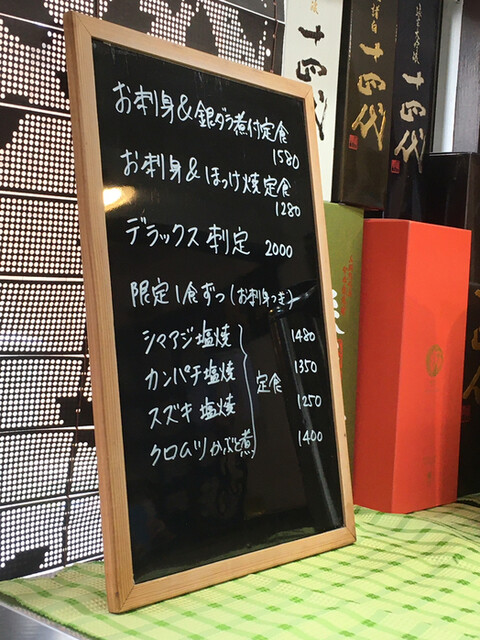 お刺身&銀ダラ煮付定食
1580
お刺身&ほっけ焼定食
1280
デラックス刺定 2000
限定1食ずつ(お刺身つき)
シマアジ塩焼 1480
カンパチ塩焼 1350
定食
スズキ塩焼 1250
クロムツかぶと煮 1400
十四代
十四代
十四代